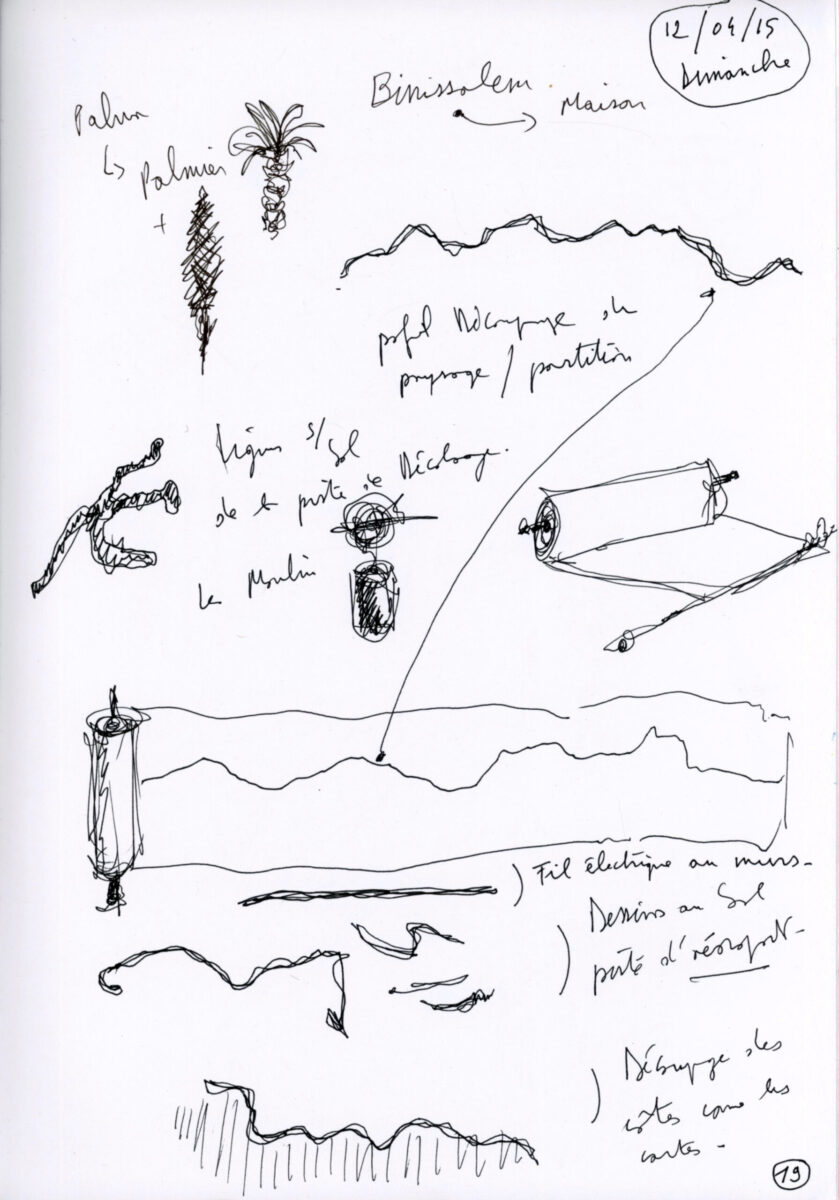 12/04/15
Dimanche
Binissalem
Maison
Palma
↳ Palmier
+
profil Découpage du
paysage / partition
Lignes s/
Sol
de la piste de Décolage.
Le Moulin
) Fil électrique au murs-
Dessins au Sol
) piste d'aéroport-
) Découpage des
côtes comme les
cartes-
19